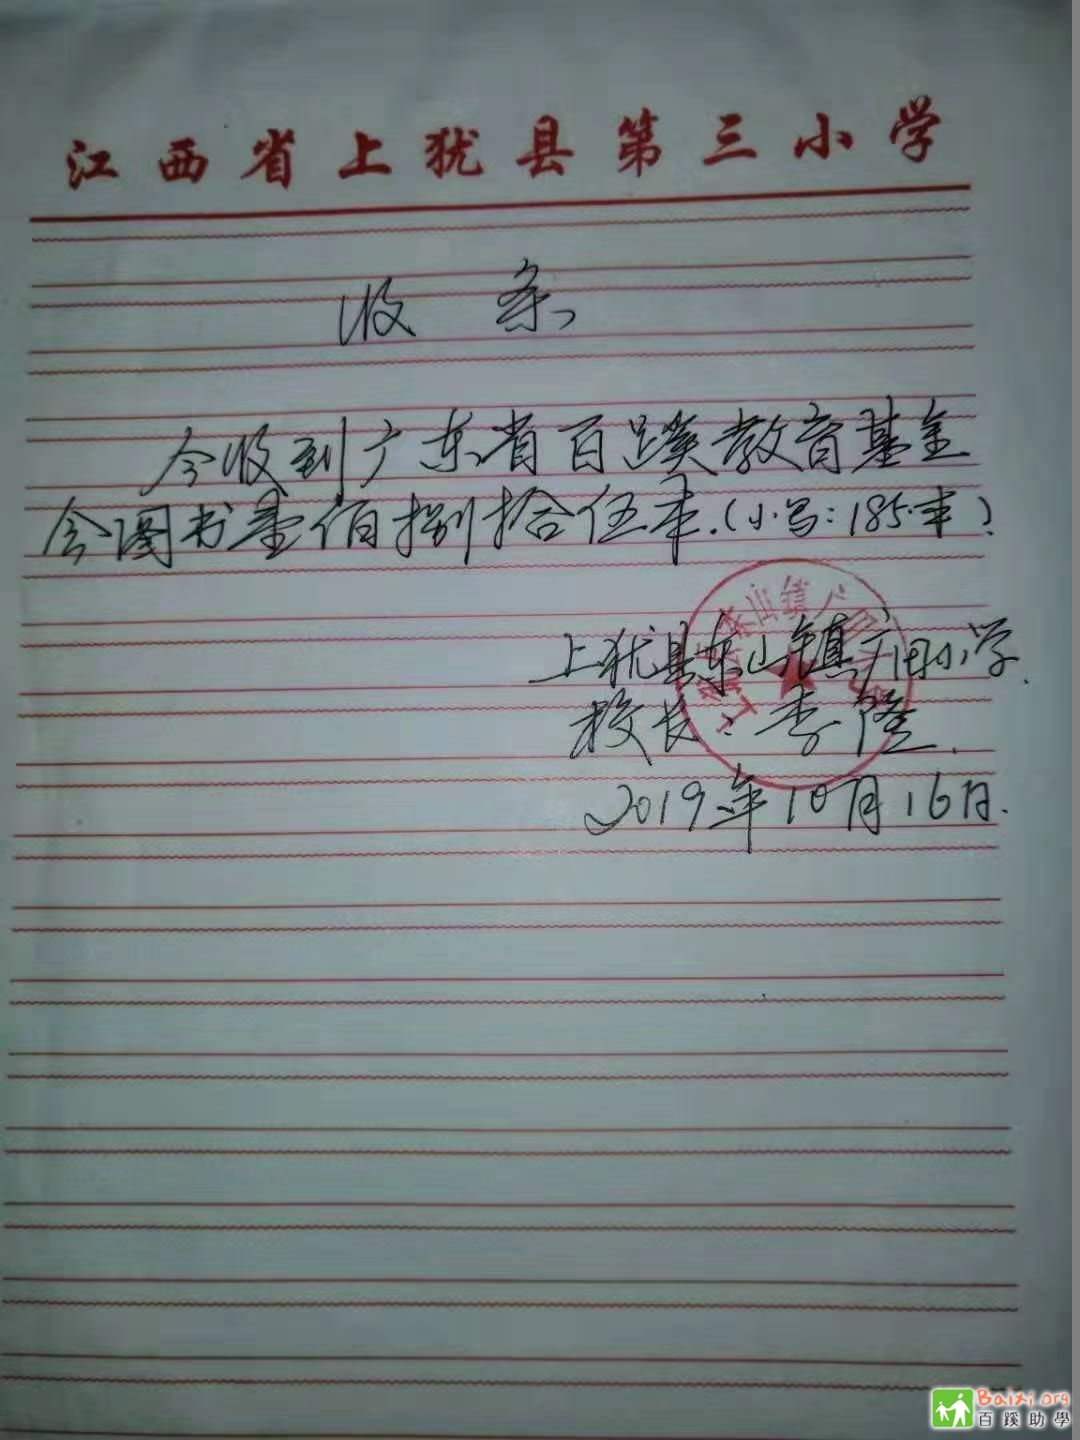 江西省上犹县第三小学
收条
今收到广东省百蹊教育基金
会图书壹佰捌拾伍本.(小写:185本)
上犹县东山镇广田小学.
校长:李隆.
2019年10月16日.
东山镇广田
Baixi.org
百蹊助學